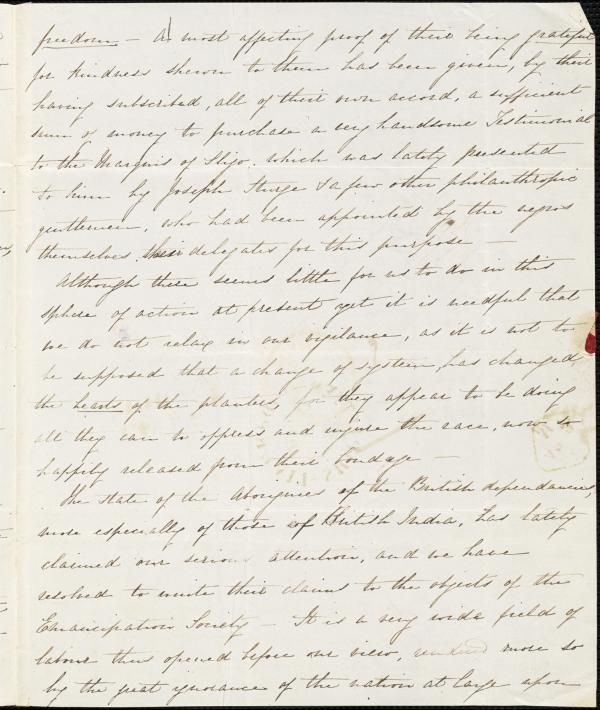 freedom — A most affecting proof of their being grateful
for kindness shewn to them has been given, by their
having subscribed, all of their own accord, a sufficient
sum of money to purchase a very handsome Testimonial
to the Marquis of Sligo, which was lately presented
to him by Joseph Sturge & a few other philanthropic
gentlemen, who had been appointed by the negros
themselves their delegates for this purpose —
Although there seems little for us to do in this
sphere of action at present yet it is needful that
we do not relax in our vigilance, as it is not to
be supposed that a change of system, has changed,
the hearts of the planters, for they appear to be doing
all they can to oppress and injure the race, now so
happily released from their bondage —
The state of the Aborigines of the British dependancies,
more especially of those of British India, has lately
claimed our serious attention, and we have
resolved to unite their claims to the objects of the
Emancipation Society — It is a very wide field of
labour thus opened before our view, rendered more so
by the great ignorance of the nation at large upon